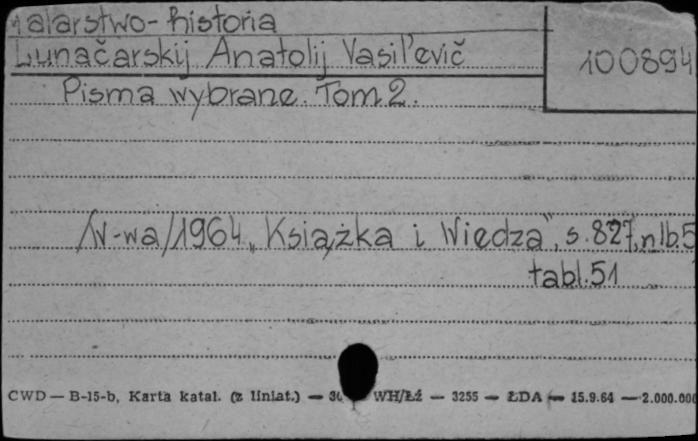 Malarstwo - historia
Lunačarskij Anatolij Vasil'evič
100894
Pisma wybrane. Tom 2.
/W-wa/1964 „Książka i Wiedza", s. 827, nlb. 5
tabl. 51
CWD — B-15-b, Karta katal. (z liniat.) — WH/Łź — 3255 — ŁDA — 15.9.64 — 2.000.000